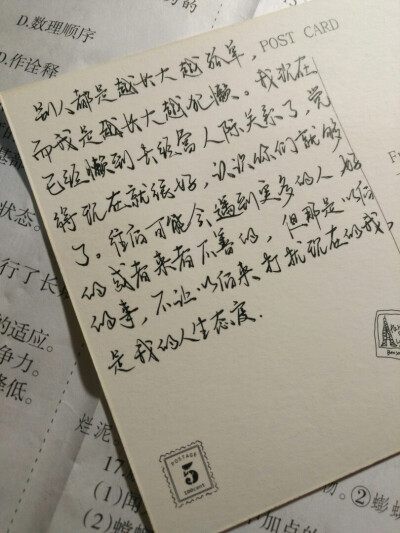 D.数理顺序
D.作诠释
状态。
行了长
的适应。
争力。
降低。
POST CARD
别人都是越长大越孤单,
而我是越长大越犯懒。我现在
已经懒到去经营人际关系了,觉
得现在就很好,认识你们就够
了。往后可能会遇到更多的人 好
的或者来者不善的,但那是以后
的事,不让以后来打扰现在的我,
是我的人生态度.
POSTAGE
5
烂泥
17.
(1)闻
(2)螳螂
加点的
。②蟛